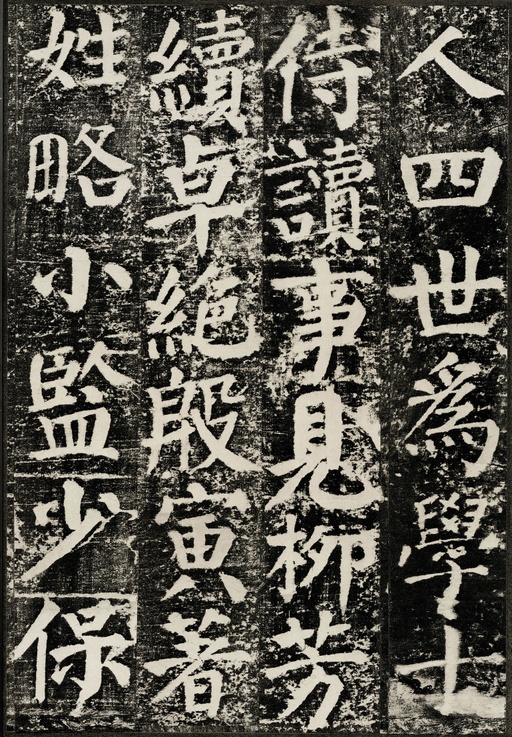 人四世為學士
侍讀事見柳芳
續卓絕殷寅著
姓略小監少保